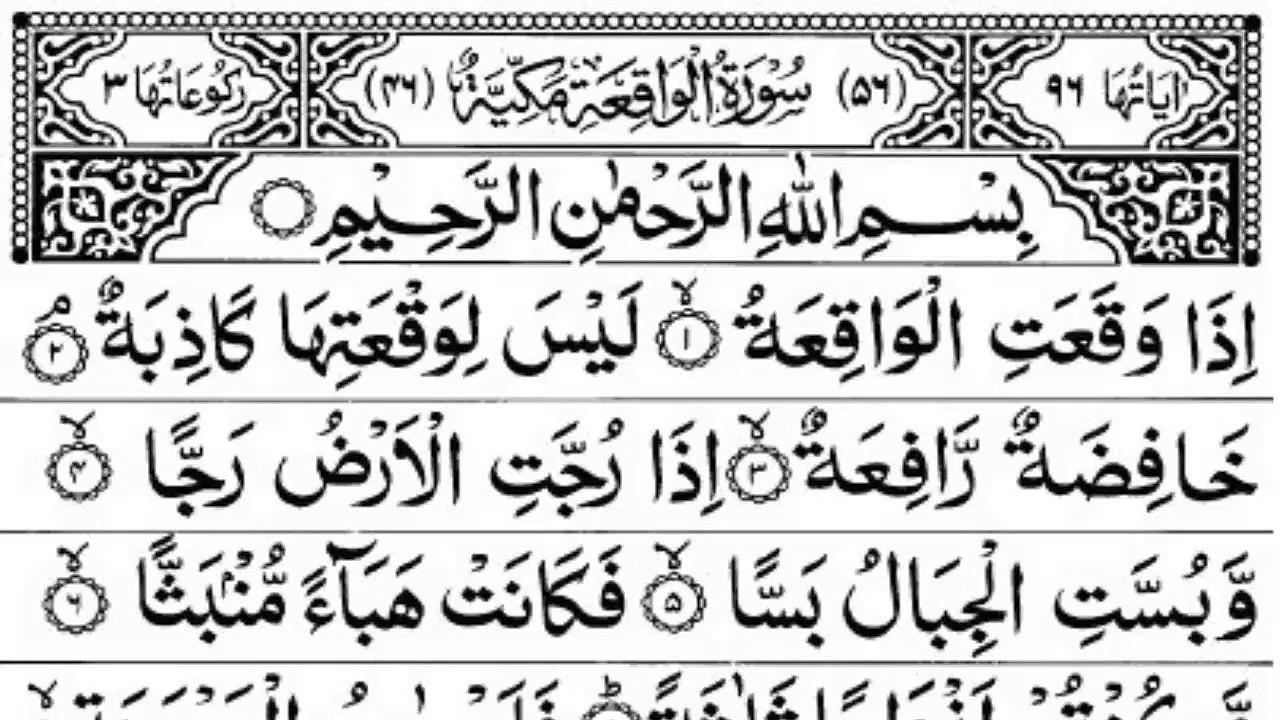 اٰيَاتُهَا ٩٦ (٥٦) سُوْرَةُ الْوَاقِعَةِ مَكِّيَّةٌ (٤٦) رُكُوْعَاتُهَا ٣
بِسْمِ اللّٰهِ الرَّحْمٰنِ الرَّحِيْمِ
اِذَا وَقَعَتِ الْوَاقِعَةُ ۙ‏ ١ لَيْسَ لِوَقْعَتِهَا كَاذِبَةٌ ۘ‏ ٢
خَافِضَةٌ رَّافِعَةٌ ۙ‏ ٣ اِذَا رُجَّتِ الْاَرْضُ رَجًّا ۙ‏ ٤
وَّبُسَّتِ الْجِبَالُ بَسًّا ۙ‏ ٥ فَكَانَتْ هَبَآءً مُّنْۢبَثًّا ۙ‏ ٦